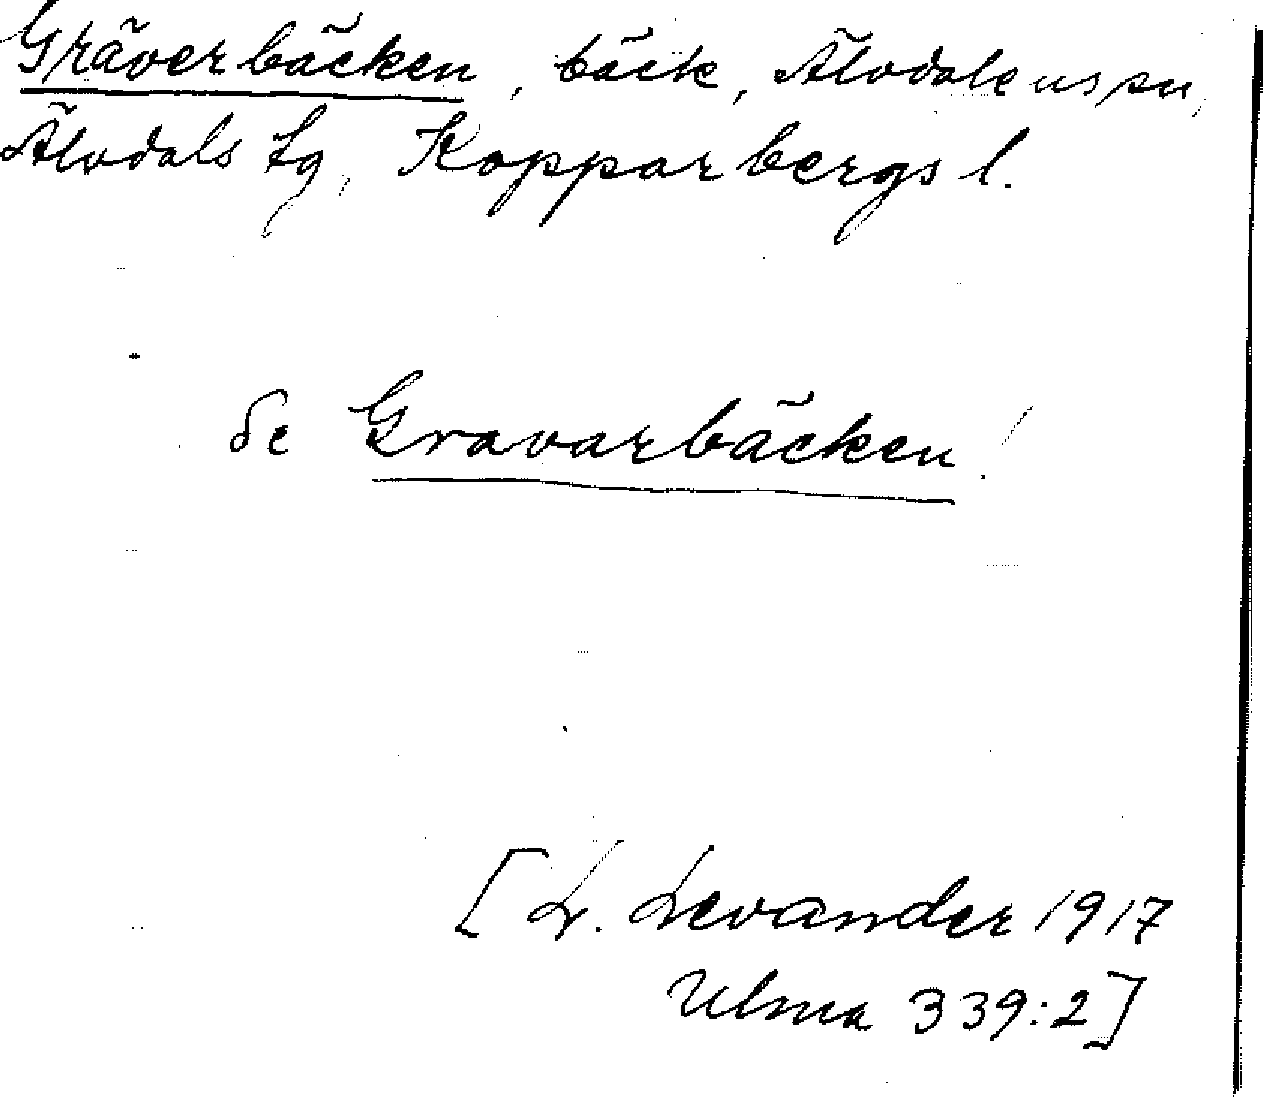 Gräverbäcken, bäck, Älvdalens sn,
Älvdals tg, Kopparbergs l.
Se Gravarbäcken!
[L. Levander 1917
Ulma 339:2]